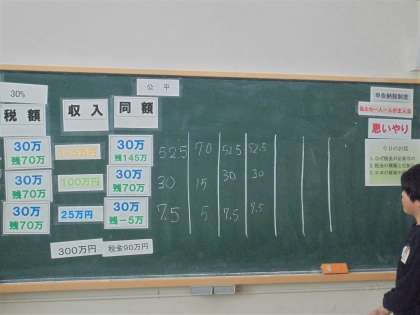 30%
公平
税額 収入 同額
30万 残70万
30万 残145万
52.5 70 52.5 52.5
30万 残70万
100万円
30万 残70万
30 15 30 30
30万 残70万
25万円
30万 残-5万
7.5 5 7.5 7.5
300万円 税金90万円
申告納税制度
思いやり
今日のお話